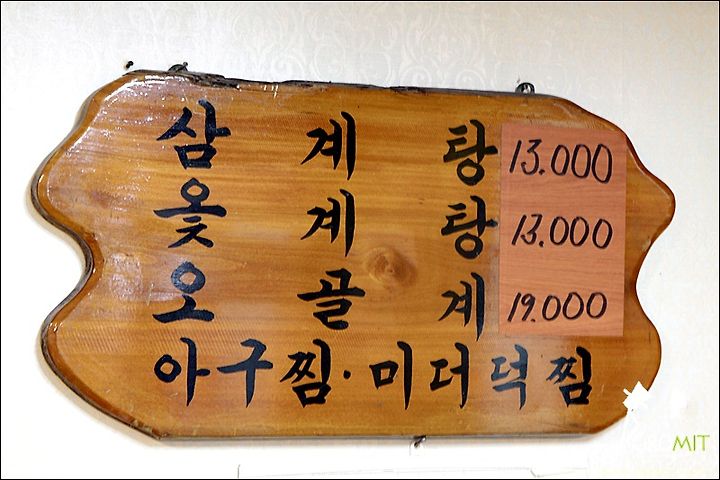 삼 계 탕 13.000
옻 계 탕 13.000
오 골 계 19.000
아구찜·미더덕찜
MIT